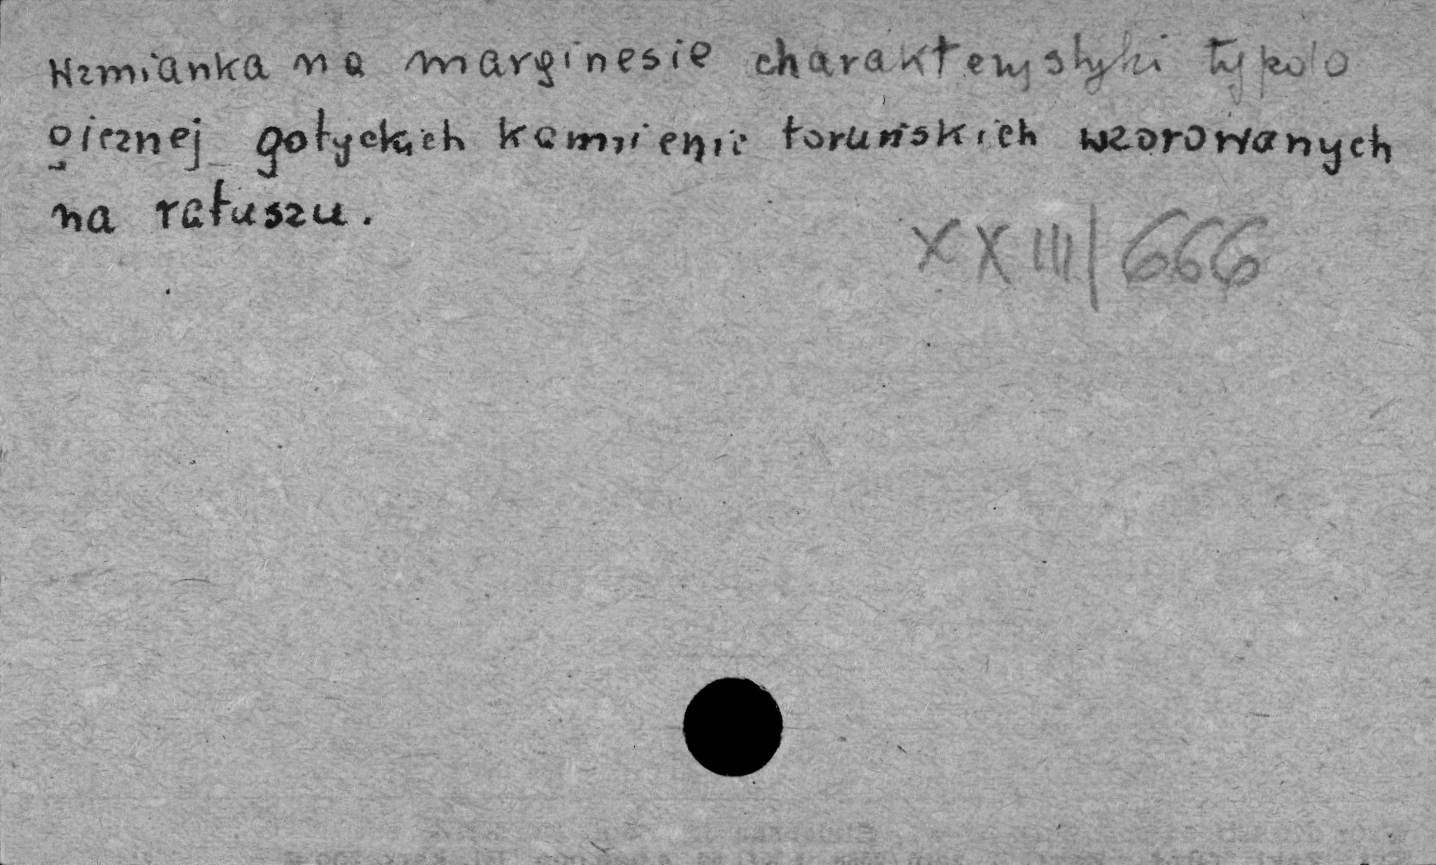 Wzmianka na marginesie charakterystyki typolo
gicznej gotyckich kamienic toruńskich wzorowanych
na ratuszu.
XXIII/666